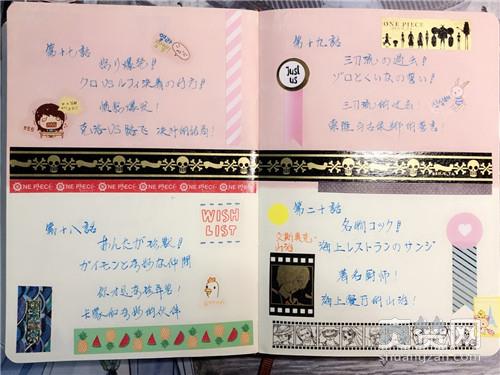 第十七話
怒り爆発!
クロVSルフィ決着の行方!
愤怒爆发!
克洛VS路飞 决斗的结局!
ONE PIECE
第十八話
WISH LIST
あんたが珍獣!
ガイモンと奇妙な仲間
你才是珍稀异兽!
ONE PIECE
第十九話
三刀流の過去!
ゾロとくいなの誓い!
Just us
三刀流的过去!
索隆与古依娜的誓言!
第二十話
名物コック!
海上レストランのサンジ
山治
著名厨师!
海上餐厅的山治!
shuangzan.com